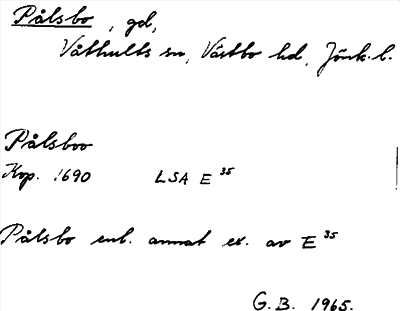 Pålsbo, gd,
Våthults sn, Västbo hd, Jönk. l.
Pålsboo
Kop. 1690 LSA E 35
Pålsbo enl. annat ex. av E 35
G. B. 1965.